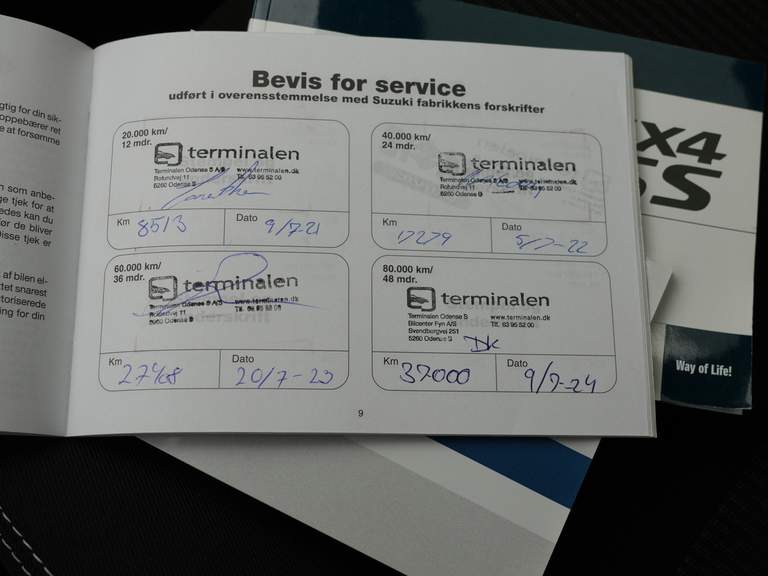 gtig for din sik-
oppebærer ret
e at forsømme
n som anbe-
ge tjek for at
edes kan du
ør de bliver
Disse tjek er
af bilen el-
tet snarest
toriserede
ing for din
Bevis for service
udført i overensstemmelse med Suzuki fabrikkens forskrifter
20.000 km/
12 mdr.
terminalen
Terminalen Odense S A/S www.terminalen.dk
Rolundvej 11 Tlf. 63 95 52 00
5260 Odense S
Km 8513
Dato 9/7-21
40.000 km/
24 mdr.
terminalen
Terminalen Odense S A/S www.terminalen.dk
Rolundvej 11 Tlf. 63 95 52 00
5260 Odense S
Km 17279
Dato 5/7-22
60.000 km/
36 mdr.
terminalen
Terminalen Odense S A/S www.terminalen.dk
5260 Odense S
Km
Dato 20/7-23
80.000 km/
48 mdr.
terminalen
Terminalen Odense S www.terminalen.dk
Bilcenter Fyn A/S Tlf. 63 95 52 00
Svendborgvej 251
5260 Odense S
DK
Km 37000
Dato 9/7-24
9
X4
S
Way of Life!